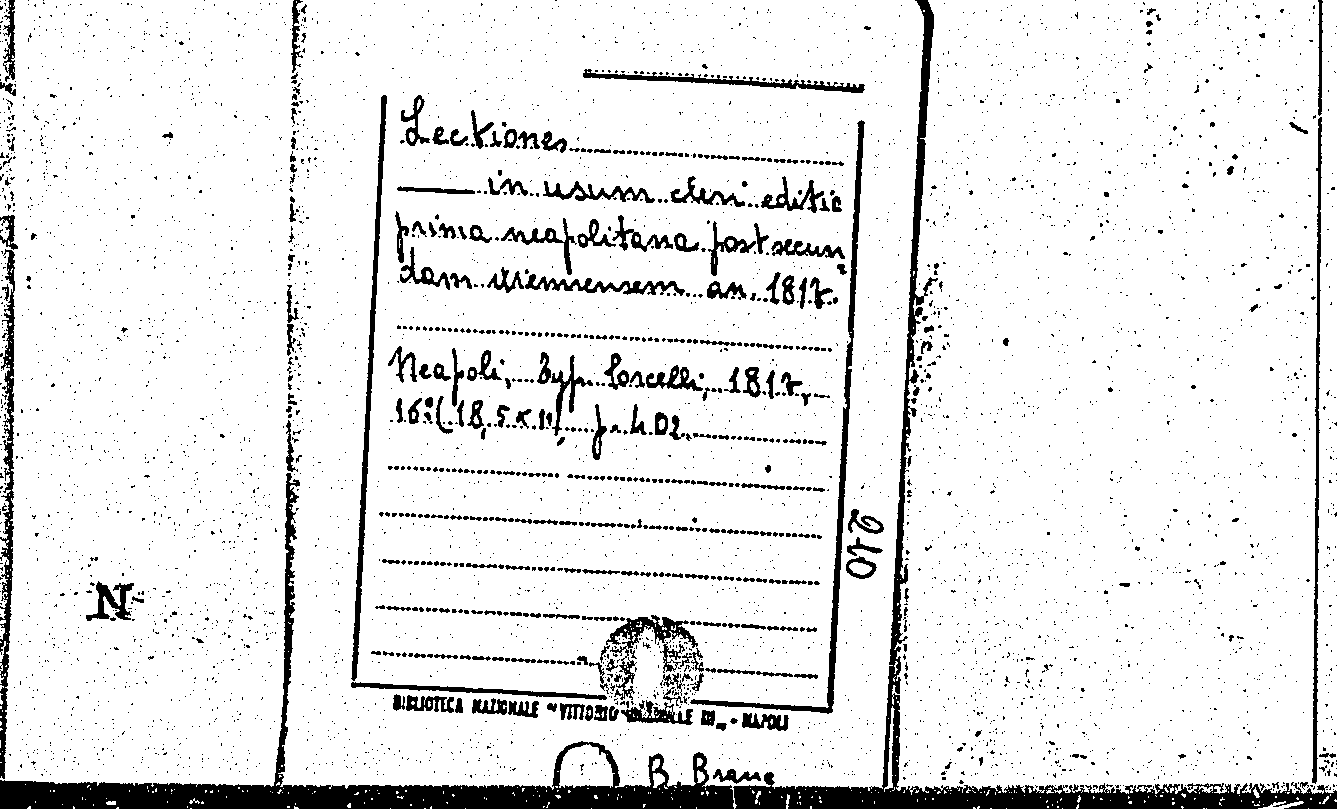 Lectiones
—— in usum cleri editio
prima neapolitana post secun
dam viennensem an. 1817.
Neapoli, Typ. Porcelli, 1817,
16º (18,5 x 11), p. 402.
240
N
BIBLIOTECA NAZIONALE "VITTORIO EMANUELE III" - NAPOLI
B. Branc